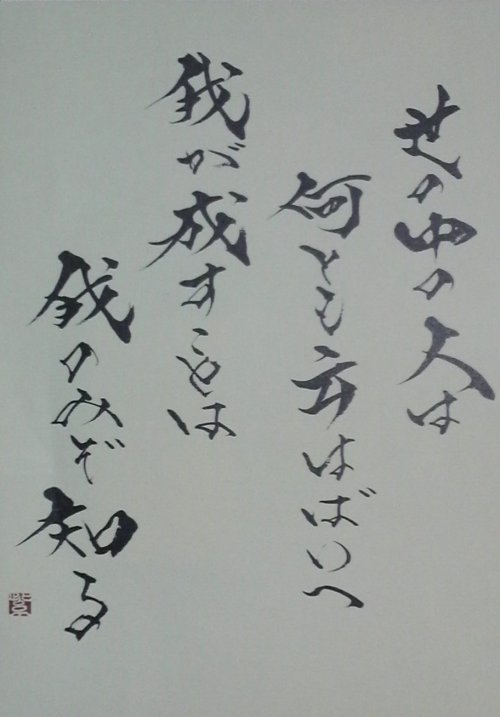 世の中の人は
何とも云はばいへ
我が成すことは
我のみぞ知る